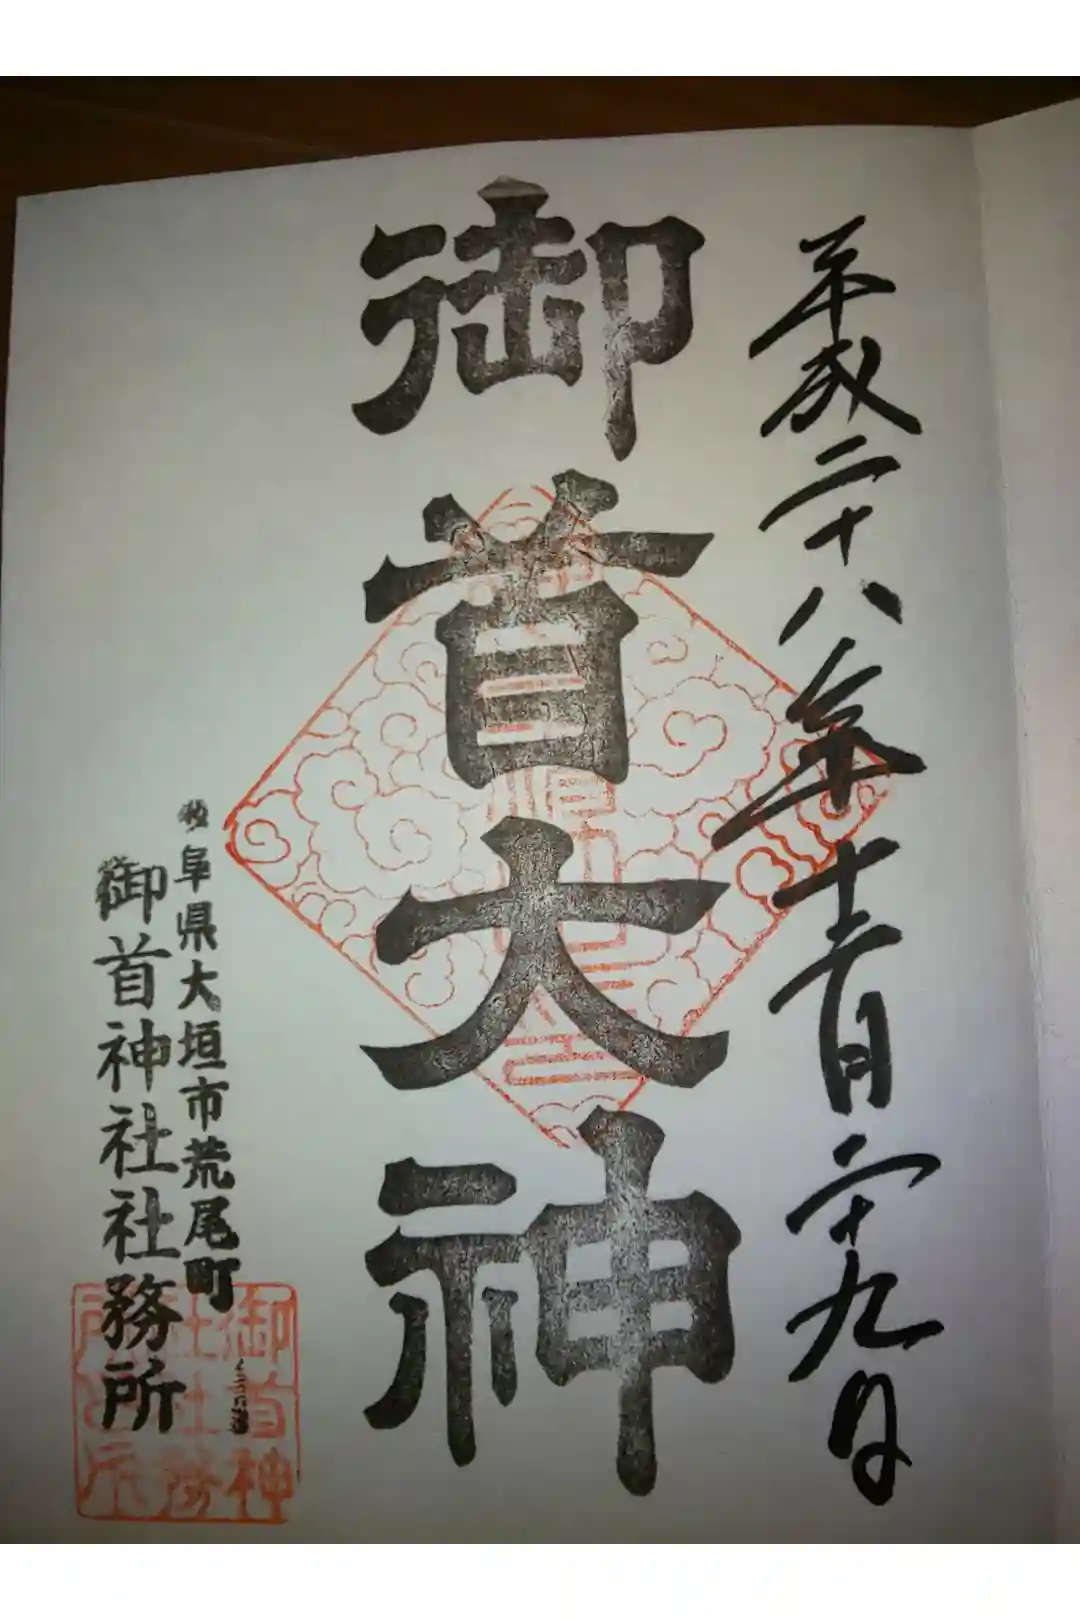 平成二十八年十二月二十九日
御首大神
岐阜県大垣市荒尾町
御首神社社務所
御首神
社社務
所之広